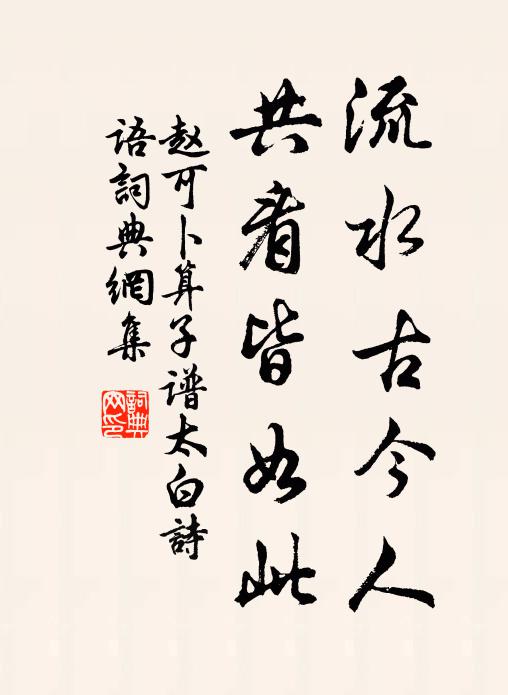 流水古今人
共看皆如此
赵可卜算子谱太白詩
語詞典網集
詞典
网印